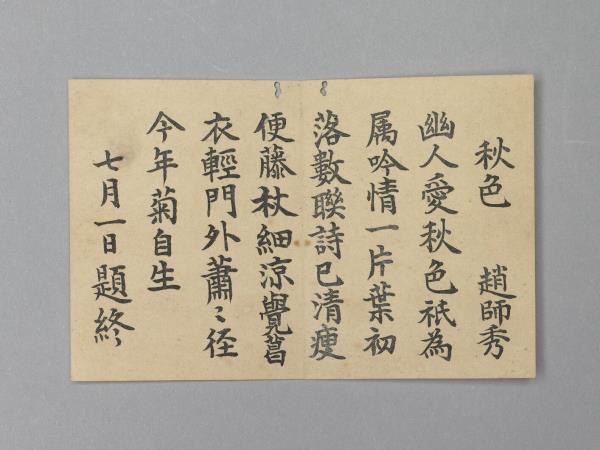 秋色 趙師秀
幽人愛秋色祇為
属吟情一片葉初
落數聯詩已清瘦
便藤杖細涼覺葛
衣輕門外蕭〻径
今年菊自生
七月一日題終